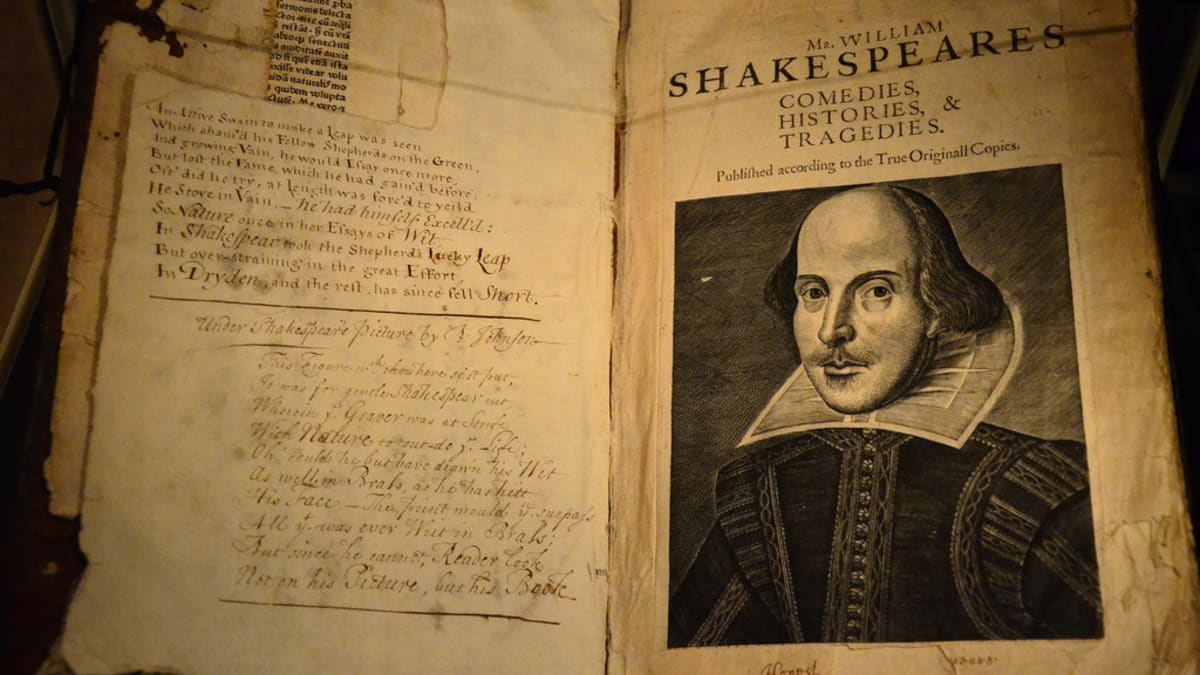 sermonis delecta
restāt.
abroqꝫ senectuti
auiditatē auxit
uidā naturalē mo
quidem volupta
An Active Swain to make a Leap was seen
Which sham'd his Fellow Shepherds on the Green,
And growing Vain, he would Essay once more,
But lost the Fame, which he had gain'd before;
Oft' did he try, at Length was forc'd to yeild
He Stove in Vain, — he had himself Excell'd:
So Nature once in her Essays of Wit,
In Shakespear took the Shepherd's Lucky Leap
But over-straining in the great Effort,
In Dryden, and the rest, has since fell Short.
Under Shakespears Picture by B. Johnson
This Figure wch. thou here seest put,
It was for gentle Shakespear cut
Wherein ye. Graver was at Strife
With Nature to out-do ye. Life;
Oh! could he but have drawn his Wit
As well in Brass, as he has hett
His Face — The print would yn. surpass
All yt. was ever Writ in Brass;
But since he cannot, Reader look
Not on his Picture, but his Book
Mr. WILLIAM
SHAKESPEARES
COMEDIES,
HISTORIES, &
TRAGEDIES.
Publiſhed according to the True Originall Copies.